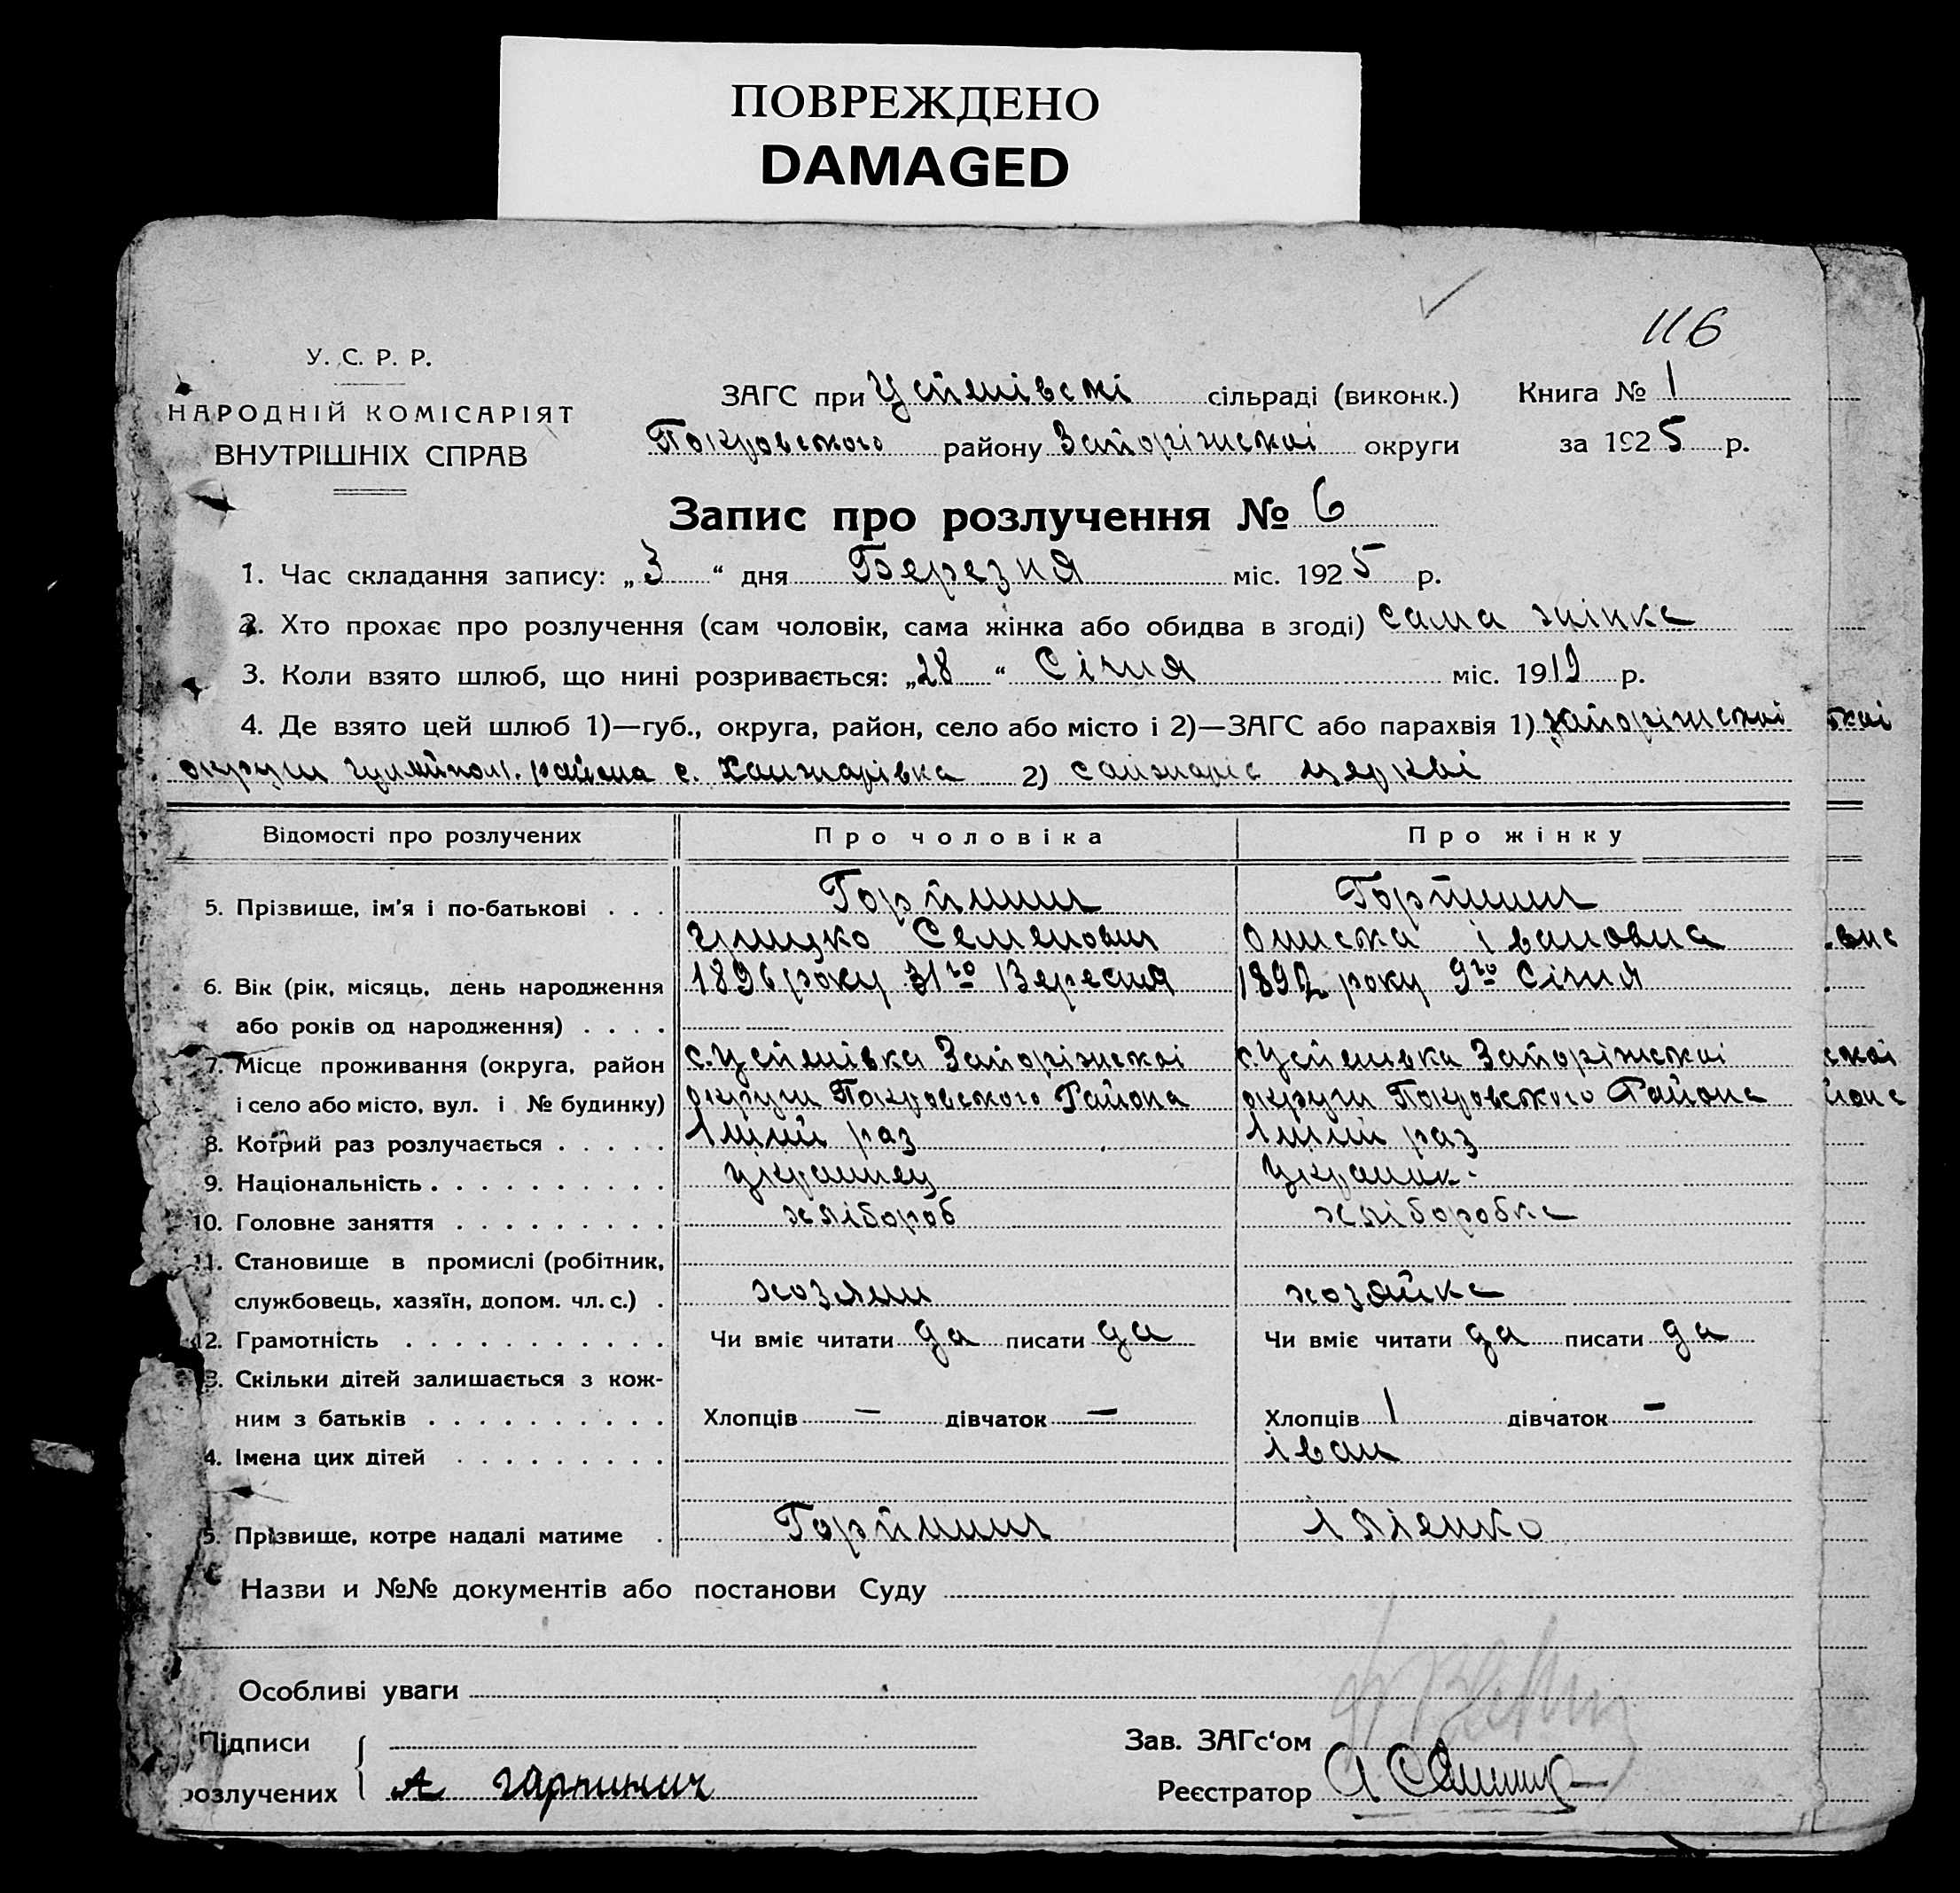 ПОВРЕЖДЕНО
DAMAGED
116
У. С. Р. Р.
НАРОДНІЙ КОМІСАРІЯТ
ВНУТРІШНІХ СПРАВ
ЗАГС при Успенівскі сільраді (виконк.) Книга № 1
Покровського району Запоріжскоі округи за 1925 р.
Запис про розлучення № 6
1. Час складання запису: „3“ дня Березня міс. 1925 р.
2. Хто прохає про розлучення (сам чоловік, сама жінка або обидва в згоді) сама жінка
3. Коли взято шлюб, що нині розривається: „28“ Січня міс. 1912 р.
4. Де взято цей шлюб 1)—губ., округа, район, село або місто і 2)—ЗАГС або парахвія 1) Запоріжскоі
округи гуляйпол. района с. 2) церкві
Відомості про розлучених Про чоловіка Про жінку
5. Прізвище, ім'я і по-батькові . . . Горпинич Горпинич
грицко Семенович Ониска івановна
6. Вік (рік, місяць, день народження 1896 року 31го Вересня 1892 року 9го Січня
або років од народження) . . . .
7. Місце проживання (округа, район с. Успенівка Запоріжскоі с. Успенівка Запоріжскоі
і село або місто, вул. і № будинку) округи Покровського Района округи Покровського Района
8. Котрий раз розлучається . . . . . раз раз
9. Національність . . . . . . . . . . українец українк.
10. Головне заняття . . . . . . . . . хлібороб хліборобка
11. Становище в промислі (робітник,
службовець, хазяїн, допом. чл. с.) . хозяин хозяйка
12. Грамотність . . . . . . . . . . . Чи вміє читати да писати да Чи вміє читати да писати да
3. Скільки дітей залишається з кож-
ним з батьків . . . . . . . . . . Хлопців — дівчаток — Хлопців 1 дівчаток —
4. Імена цих дітей . . . . . . . . . Іван
5. Прізвище, котре надалі матиме . Горпинич Іллєнко
Назви и №№ документів або постанови Суду
Особливі уваги
Підписи Зав. ЗАГс'ом
розлучених А гарпинич Реєстратор